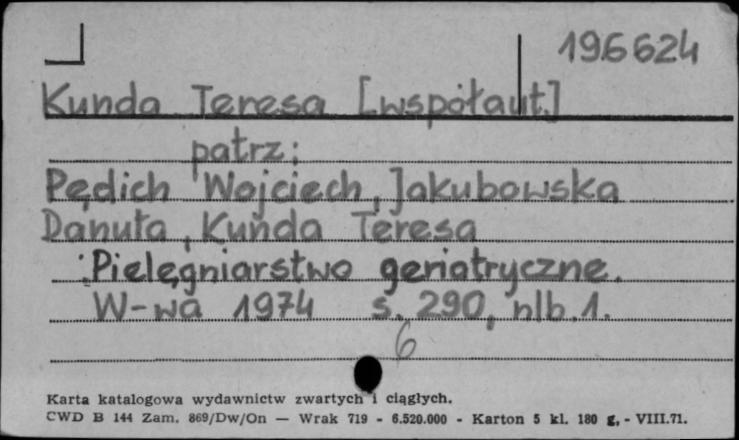 196624
Kunda Teresa [współaut.]
patrz:
Pędich Wojciech, Jakubowska
Danuta, Kunda Teresa
Pielęgniarstwo geriatryczne.
W-wa 1974 s. 290, nlb. 1.
6
Karta katalogowa wydawnictw zwartych i ciągłych.
CWD B 144 Zam. 869/Dw/On — Wrak 719 - 6.520.000 - Karton 5 kl. 180 g. - VIII.71.